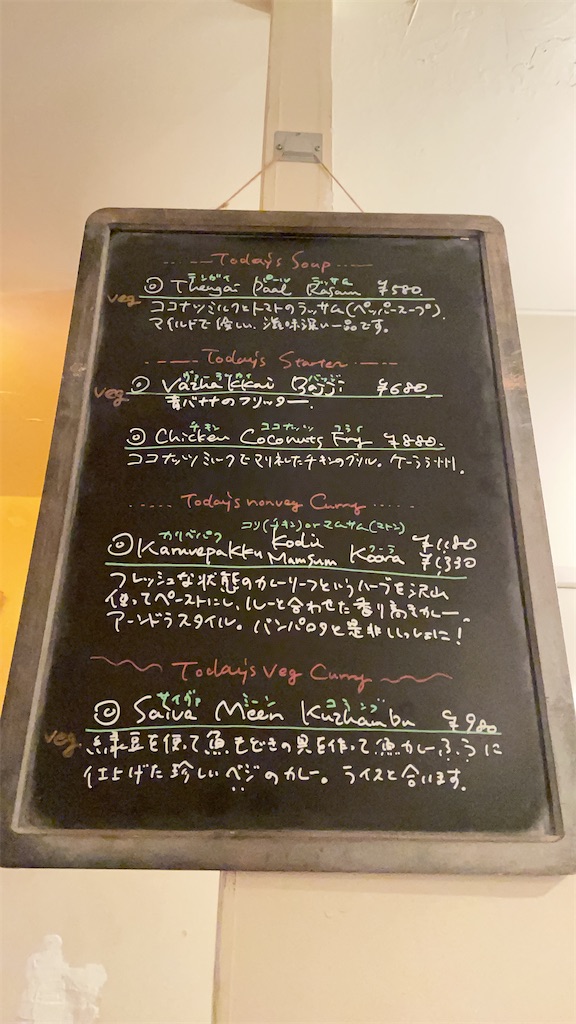 Today's Soup
テンガイ パール ラッサム
◎ Thengai Paal Rasam ¥580
veg
ココナッツミルクとトマトのラッサム(ペッパースープ).
マイルドで優しい、滋味深い一品です。
Today's Starter
veg ◎ Vazhakkai Bajji ¥680
青バナナのフリッター.
チキン ココナッツ フライ
◎ Chicken Coconuts Fry ¥880.
ココナッツミルクでマリネしたチキンのグリル。ケーララ州.
Today's nonveg Curry
カリベパク コリ(チキン) or マムサム(マトン)
Kodi ¥1,180
◎ Karuvepakku Mamsum Koora ¥1,330
フレッシュな状態のカレーリーフというハーブを沢山
使ってペーストにし、ルーと合わせた香り高きカレー
アーンドラスタイル。パンパロタと是非いっしょに!
Today's Veg Curry
サイヴァ ミーン コランブ
◎ Saiva Meen Kuzhambu ¥980
veg
緑豆を使って魚もどきの具を作って魚カレーふうに
仕上げた珍しいベジのカレー。ライスと合います.